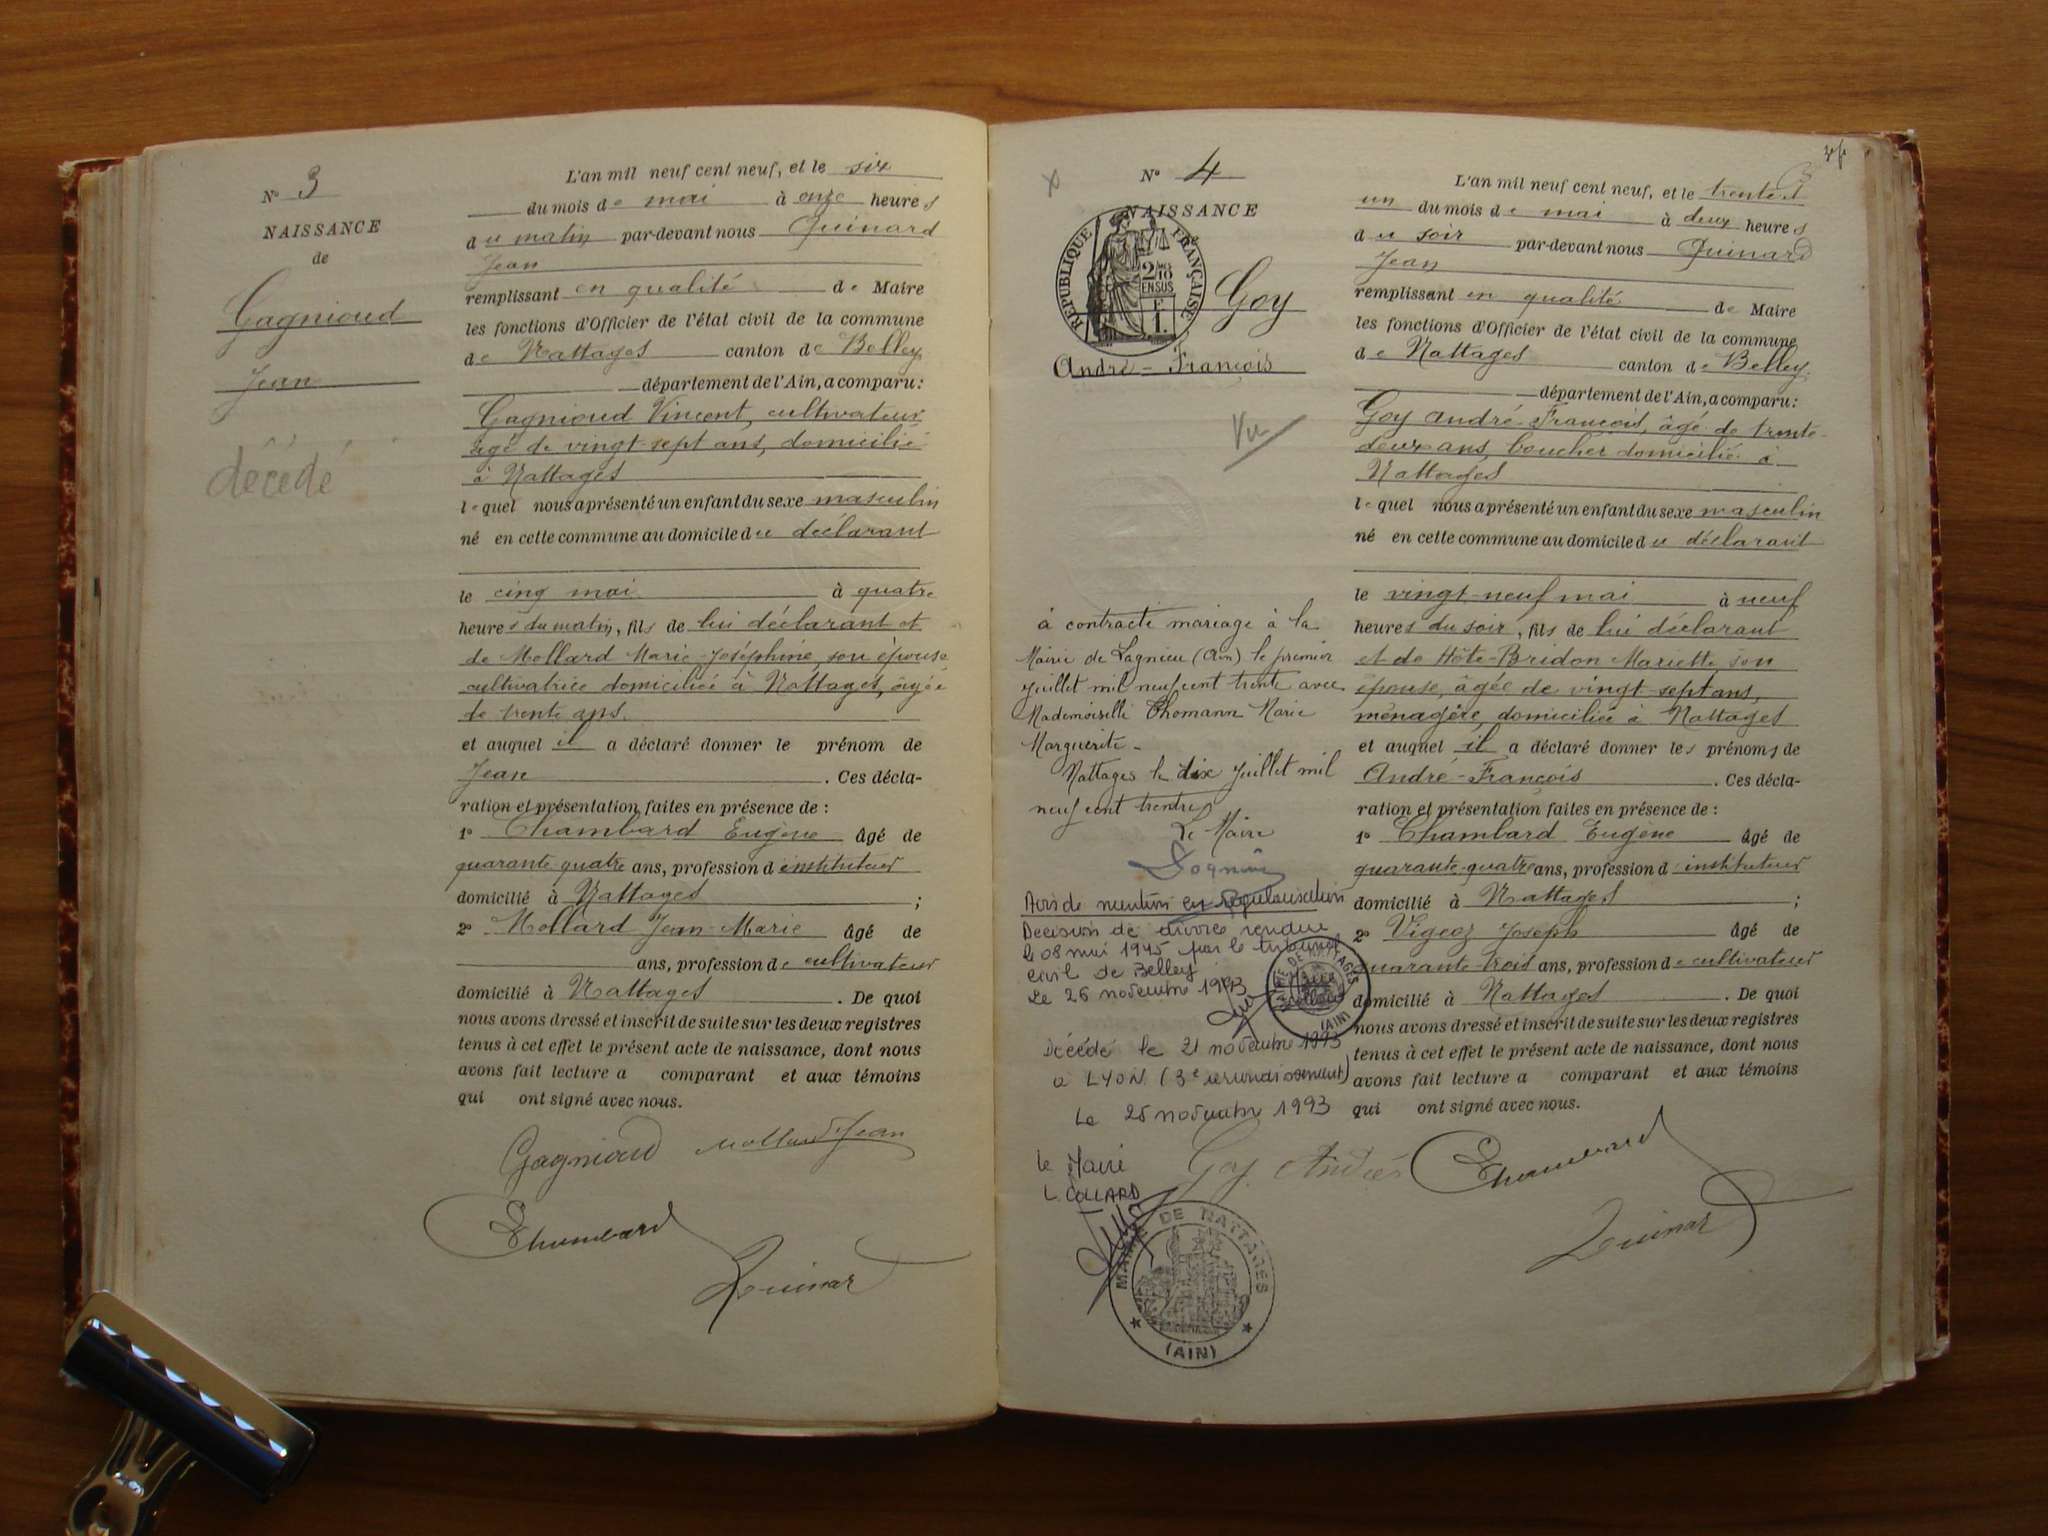 N° 3
NAISSANCE
de
Gagnioud
Jean
décédé
L'an mil neuf cent neuf, et le six
du mois de mai à onze heures
du matin par-devant nous Quinard
Jean
remplissant en qualité de Maire
les fonctions d'Officier de l'état civil de la commune
de Nattages canton de Belley,
département de l'Ain, a comparu :
Gagnioud Vincent, cultivateur,
âgé de vingt-sept ans, domicilié
à Nattages
lequel nous a présenté un enfant du sexe masculin
né en cette commune au domicile du déclarant
le cinq mai à quatre
heures du matin, fils de lui déclarant et
de Mollard Marie-Joséphine, son épouse
cultivatrice domiciliée à Nattages, âgée
de trente ans.
et auquel il a déclaré donner le prénom de
Jean . Ces décla-
ration et présentation faites en présence de :
1° Chambard Eugène âgé de
quarante-quatre ans, profession d'instituteur
domicilié à Nattages ;
2° Mollard Jean-Marie âgé de
ans, profession de cultivateur
domicilié à Nattages . De quoi
nous avons dressé et inscrit de suite sur les deux registres
tenus à cet effet le présent acte de naissance, dont nous
avons fait lecture a comparant et aux témoins
qui ont signé avec nous.
Gagnioud Mollard Jean
Chambard
Quinard
N° 4
NAISSANCE
REPUBLIQUE FRANÇAISE
2/10
EN SUS
F
1.
Goy
André-François
Vu
à contracté mariage à la
Mairie de Lagnieu (Ain) le premier
Juillet mil neuf cent trente avec
Mademoiselle Thomann Marie
Marguerite.
Nattages le dix Juillet mil
neuf cent trente
Le Maire
Avis de mention en régularisation
Decision de divorce rendue
le 08 mai 1945 par le tribunal
civil de Belley
Le 26 novembre 1993
MAIRIE DE NATTAGES
(AIN)
Décédé le 21 novembre 1993
à LYON (3e arrondissement)
Le 25 novembre 1993
le Maire
L. COLLARD
MAIRIE DE NATTAGES
(AIN)
L'an mil neuf cent neuf, et le trente et
un du mois de mai à deux heures
du soir par-devant nous Quinard
Jean
remplissant en qualité de Maire
les fonctions d'Officier de l'état civil de la commune
de Nattages canton de Belley,
département de l'Ain, a comparu :
Goy André-François, âgé de trente-
deux ans, boucher domicilié à
Nattages
lequel nous a présenté un enfant du sexe masculin
né en cette commune au domicile du déclarant
le vingt-neuf mai à neuf
heures du soir, fils de lui déclarant
et de Hôte-Bridon Mariette, son
épouse, âgée de vingt-sept ans,
ménagère, domiciliée à Nattages
et auquel il a déclaré donner les prénoms de
André-François . Ces décla-
ration et présentation faites en présence de :
1° Chambard Eugène âgé de
quarante-quatre ans, profession d'instituteur
domicilié à Nattages ;
2° Vigoz Joseph âgé de
quarante-trois ans, profession de cultivateur
domicilié à Nattages . De quoi
nous avons dressé et inscrit de suite sur les deux registres
tenus à cet effet le présent acte de naissance, dont nous
avons fait lecture a comparant et aux témoins
qui ont signé avec nous.
Goy André Chambard
Quinard